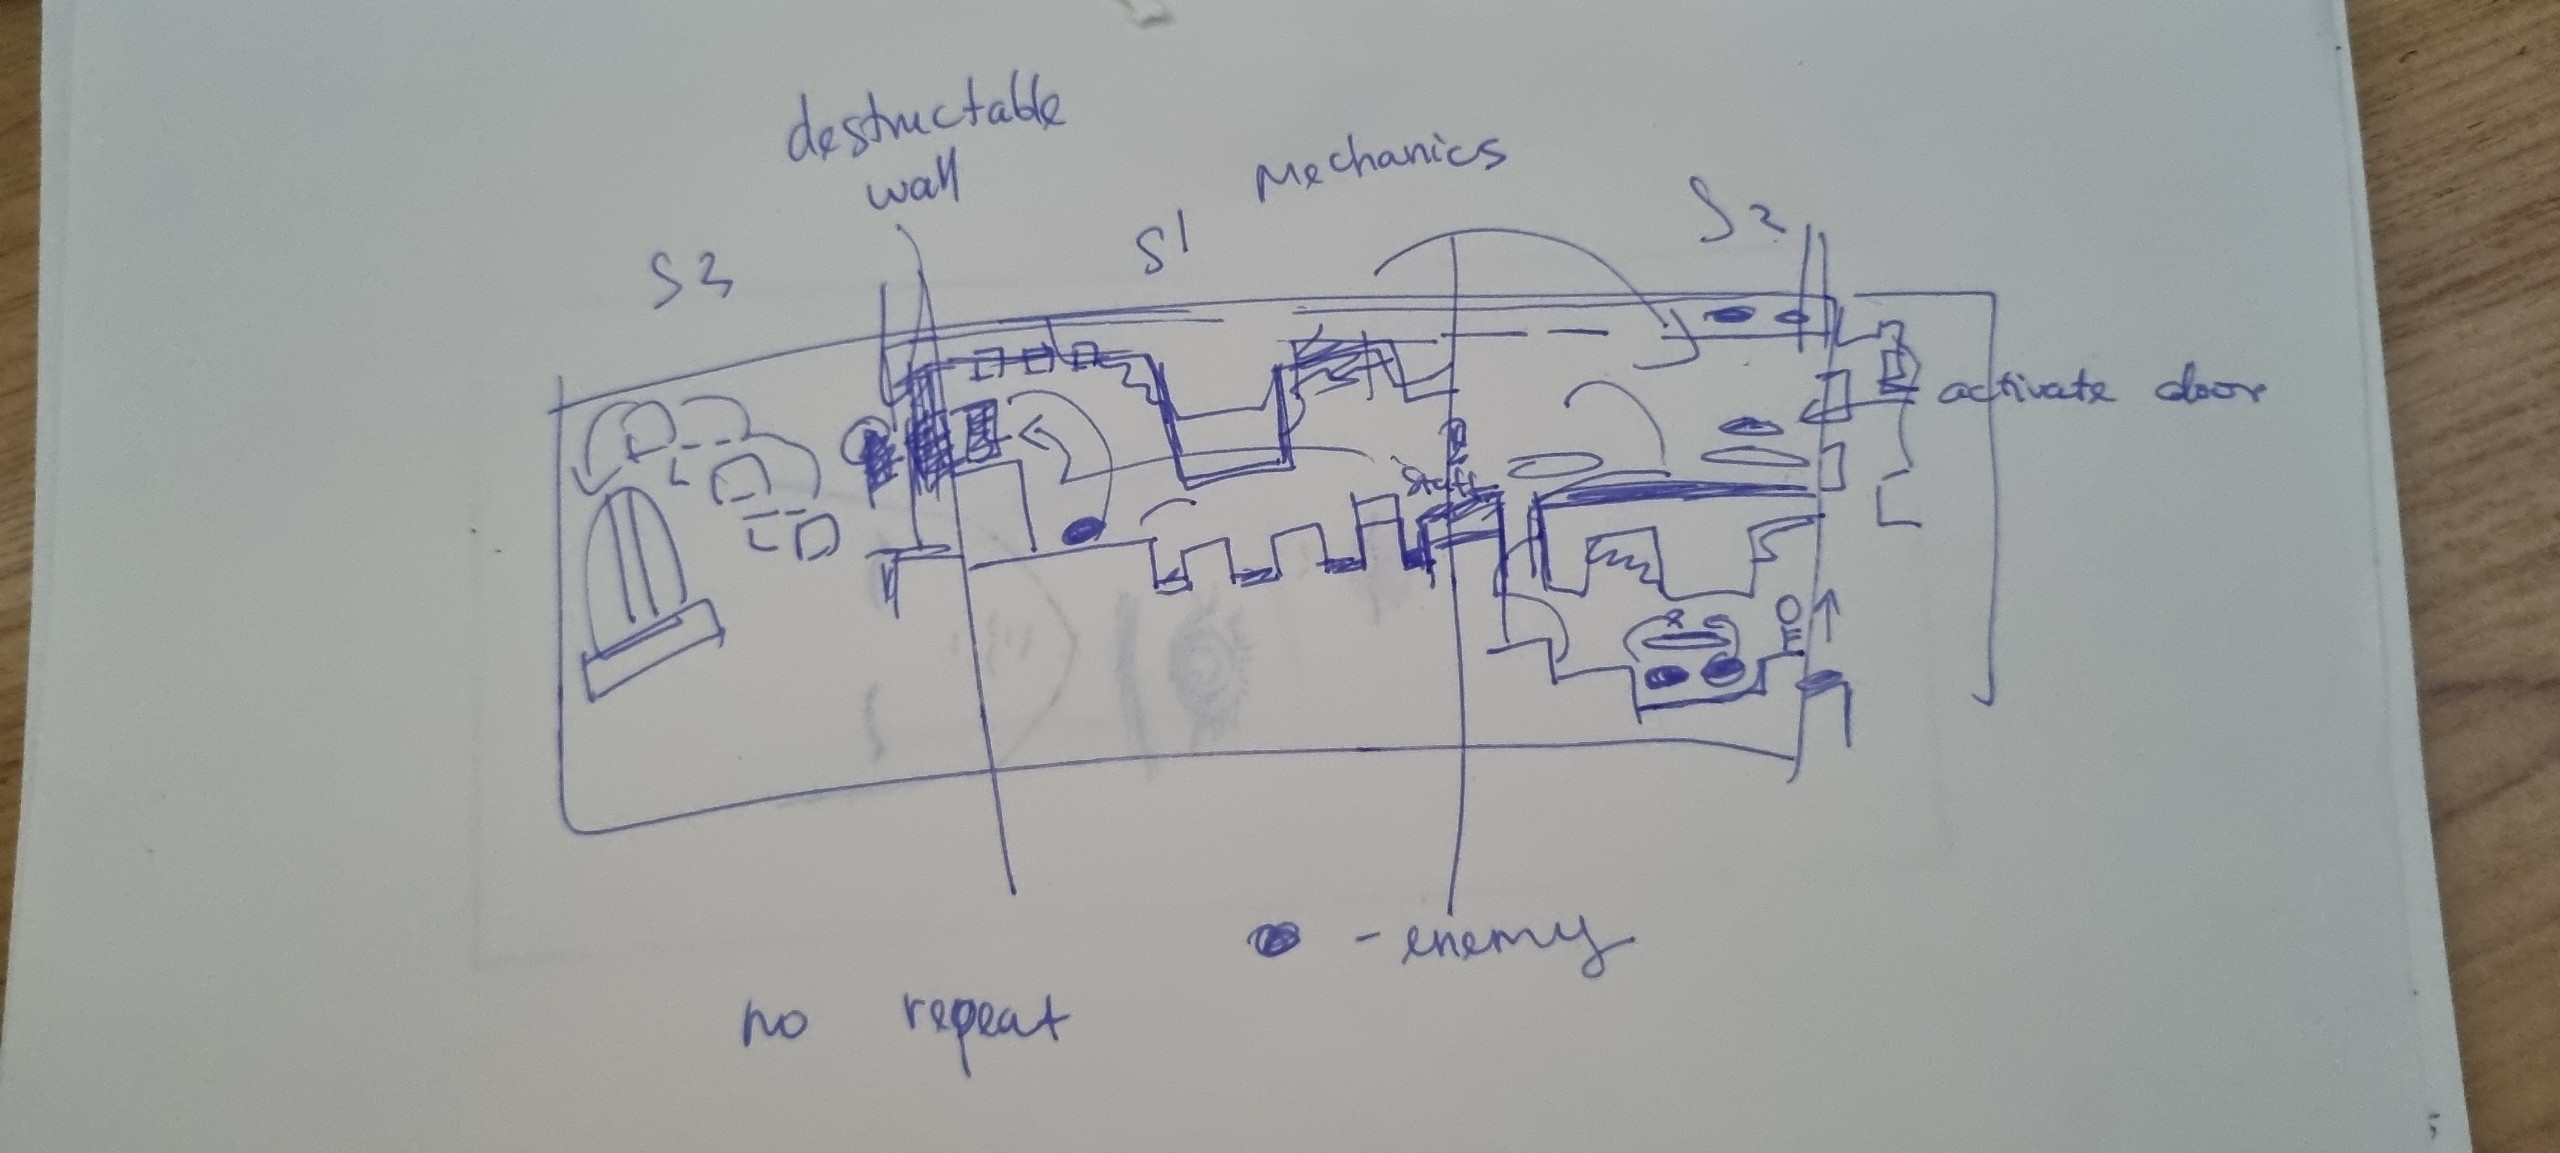 destructable
wall
Mechanics
S3
S1
S2
activate door
Staff
- enemy
no repeat